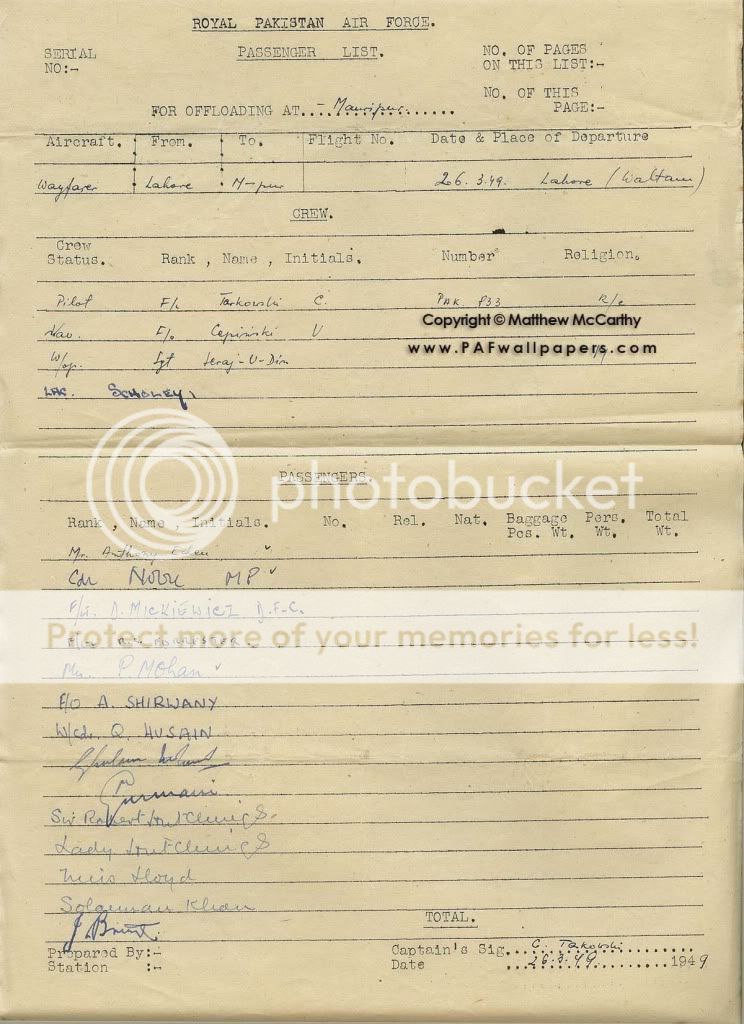 ROYAL PAKISTAN AIR FORCE.
SERIAL NO:-
PASSENGER LIST.
NO. OF PAGES ON THIS LIST:-
NO. OF THIS PAGE:-
FOR OFFLOADING AT...- Mauripur
Aircraft. From. To. Flight No. Date & Place of Departure
Wayfarer Lahore M-pur 26.3.49. Lahore (Waltam)
CREW.
Crew Status. Rank, Name, Initials. Number Religion.
Pilot F/L Tarkowski C. PAK. 833 R/C
Nav. F/o V
Copyright © Matthew McCarthy
www.PAFwallpapers.com
W/op. Sgt Seraj-U-Din
LAC. SCHOLEY,
PASSENGERS.
photobucket
Rank, Name, Initials. No. Rel. Nat. Baggage Pcs. Wt. Pers. Wt. Total Wt.
Mr. Anthony Eden
Cdr Noble MP
F/Lt. D. MICKIEWICZ D.F.C.
Protect more of your memories for less!
FORRESTER.
P. Mohan
F/O A. SHIRWANY
W/Cdr. Q. HUSAIN
Gurmani.
Sir Robert Hutchings.
Lady Hutchings
Miss Lloyd
Khan
TOTAL.
Prepared By:-
Captain's Sig. C. Takowski
Station :-
Date 26.3.49 1949